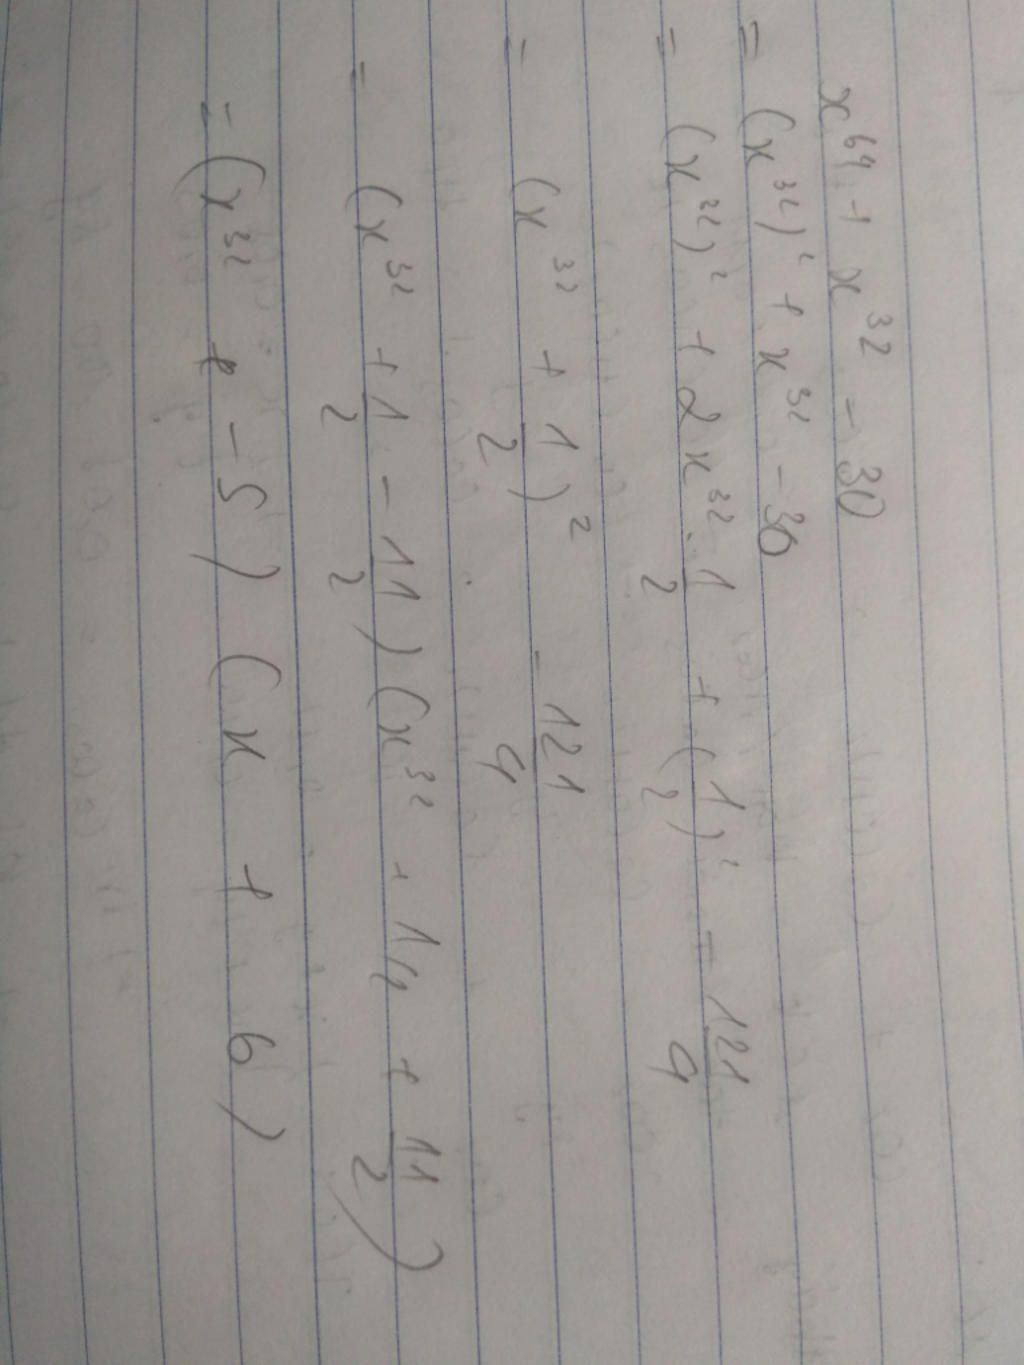 x^64 + x^32 - 30
= (x^32)^2 + x^32 - 30
= (x^32)^2 + 2x^32 · 1/2 + (1/2)^2 - 121/4
= (x^32 + 1/2)^2 - 121/4
= (x^32 + 1/2 - 11/2)(x^32 + 1/2 + 11/2)
= (x^32 + - 5)(x + 6)